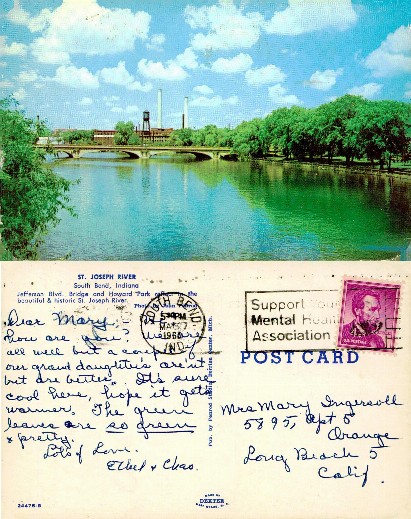 ST. JOSEPH RIVER
South Bend, Indiana
Jefferson Blvd. Bridge and Howard Park
beautiful & historic St. Joseph River.
Dear Mary,
how are you?
all well but a couple of
our grand daughters are ut
but are better. It's sure
cool here, hope it gets
warmer. The green
leaves are so green
& pretty.
Lots of Love.
Ethel & Chas.
24478-B
SOUTH BEND
PM
MAY
IND
Support Your
Mental Health
Association
U.S. POSTAGE
POST CARD
Mrs Mary Ingersoll
5895, Apt 5
Orange
Long Beach 5
Calif.
MADE BY
DEXTER